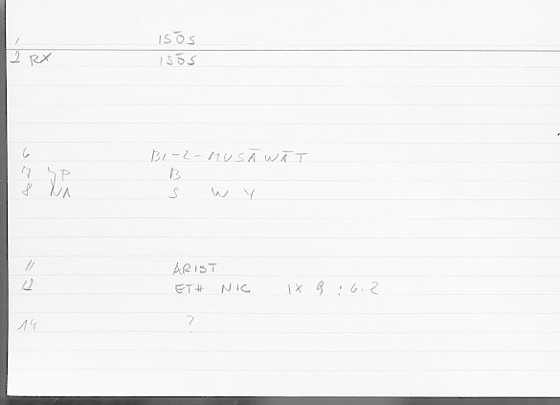 1 ISŌS
2 RX ISŌS
6 BI-L-MUSĀWĀT
7 JP B
8 NA S W Y
11 ARIST
12 ETH NIC IX 9 : 6.2
14 ?